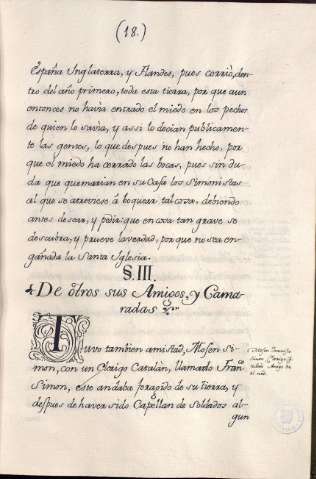 (18.)
España Inglaterra, y Flandes, pues corrió, den
tro del año primero, toda esta tierra, por que aun
entonces no havia entrado el miedo en los pechos
de quien lo savia, y assi lo decian publicamen
te las gentes, lo que despues no han hecho, por
que el miedo ha cerrado las bocas, pues sin du
da que quemarian en su Casa los Simonistas
al que se atreviese á boquear tal cosa, debiendo
antes desear, y pedir: que en cosa tan grave se
descubra, y prueve la verdad, por que no sta en
gañada la Santa Iglesia.
§. III.
De ótros sus Amigos, y Cama
radas
Tuvo tambien amistad, Mosen Si
mon, con un Clerigo Catalán, llamado Fran
Simon, este andaba foragido de su tierra, y
despues de haver sido Capellan de Soldados al
gun